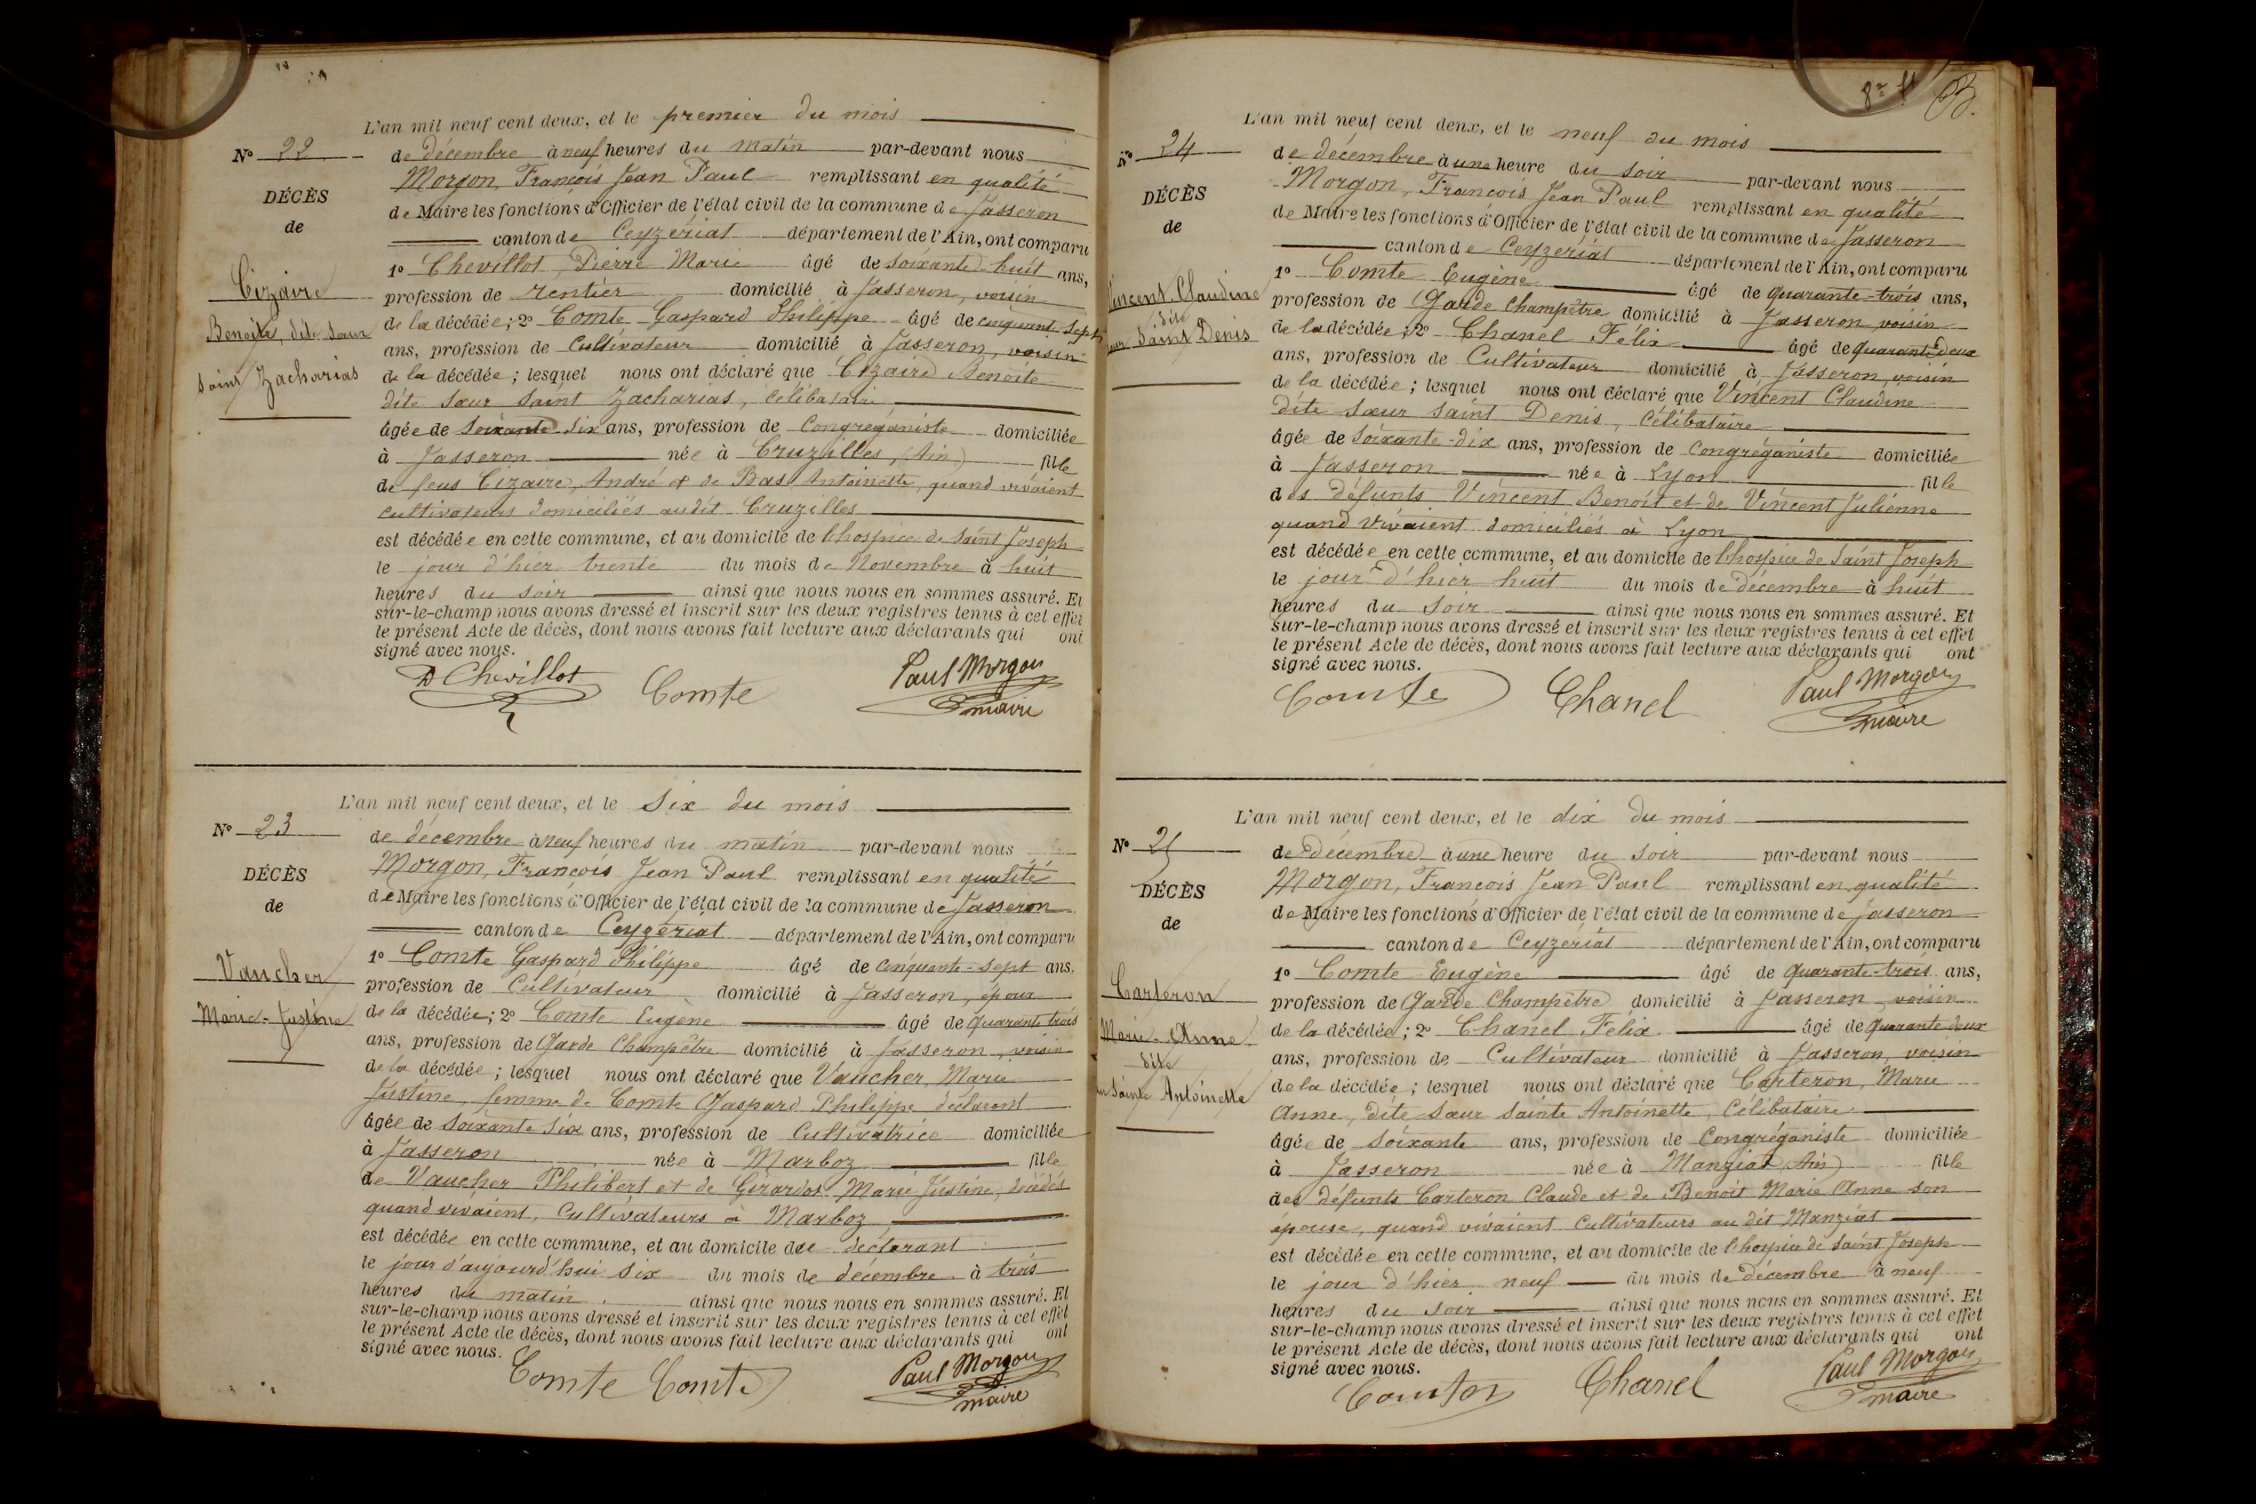 L'an mil neuf cent deux, et le premier du mois
N° 22
de décembre à neuf heures du matin par-devant nous
Morgon, François Jean Paul remplissant en qualité
DÉCÈS
de Maire les fonctions d'Officier de l'état civil de la commune de Jasseron
de
canton de Ceyzériat département de l'Ain, ont comparu
1° Chevillot, Pierre Marie âgé de soixante-huit ans,
Cizaire
profession de rentier domicilié à Jasseron, voisin
Benoite, dite sœur
de la décédée; 2° Comte Gaspard Philippe âgé de cinquante-sept
ans, profession de Cultivateur domicilié à Jasseron, voisin
saint Zacharias
de la décédée; lesquel nous ont déclaré que Cizaire Benoite
dite sœur saint Zacharias, célibataire
âgée de soixante-six ans, profession de Congréganiste domiciliée
à Jasseron née à Cruzilles, (Ain) fille
de feus Cizaire, André et de Bas Antoinette, quand vivaient
cultivateurs domiciliés audit Cruzilles
est décédée en cette commune, et au domicile de l'hospice de Saint Joseph
le jour d'hier trente du mois de Novembre à huit
heures du soir ainsi que nous nous en sommes assuré. Et
sur-le-champ nous avons dressé et inscrit sur les deux registres tenus à cet effet
le présent Acte de décès, dont nous avons fait lecture aux déclarants qui ont
signé avec nous.
Chevillot Comte Paul Morgon
maire
L'an mil neuf cent deux, et le six du mois
N° 23
de décembre à neuf heures du matin par-devant nous
Morgon, François Jean Paul remplissant en qualité
DÉCÈS
de Maire les fonctions d'Officier de l'état civil de la commune de Jasseron
de
canton de Ceyzériat département de l'Ain, ont comparu
1° Comte Gaspard Philippe âgé de cinquante-sept ans,
Vaucher
profession de Cultivateur domicilié à Jasseron, époux
Marie-Justine
de la décédée; 2° Comte Eugène âgé de quarante trois
ans, profession de Garde Champêtre domicilié à Jasseron, voisin
de la décédée; lesquel nous ont déclaré que Vaucher, Marie
Justine, femme de Comte Gaspard Philippe déclarant
âgée de soixante six ans, profession de Cultivatrice domiciliée
à Jasseron née à Marboz fille
de Vaucher Philibert et de Girardot Marie Justine, décédés
quand vivaient, Cultivateurs à Marboz
est décédée en cette commune, et au domicile du déclarant
le jour d'aujourd'hui six du mois de décembre à trois
heures du matin ainsi que nous nous en sommes assuré. Et
sur-le-champ nous avons dressé et inscrit sur les deux registres tenus à cet effet
le présent Acte de décès, dont nous avons fait lecture aux déclarants qui ont
signé avec nous.
Comte Comte Paul Morgon
maire
L'an mil neuf cent deux, et le neuf du mois
N° 24
de décembre à une heure du soir par-devant nous
Morgon, François Jean Paul remplissant en qualité
DÉCÈS
de Maire les fonctions d'Officier de l'état civil de la commune de Jasseron
de
canton de Ceyzériat département de l'Ain, ont comparu
1° Comte Eugène âgé de quarante-trois ans,
Vincent Claudine
profession de Garde Champêtre domicilié à Jasseron voisin
dite
Saint Denis
de la décédée; 2° Chanel Félix âgé de quarante deux
ans, profession de Cultivateur domicilié à Jasseron, voisin
de la décédée; lesquel nous ont déclaré que Vincent Claudine
dite sœur saint Denis, célibataire
âgée de soixante-dix ans, profession de Congréganiste domiciliée
à Jasseron née à Lyon fille
des défunts Vincent Benoit et de Vincent Julienne
quand vivaient domiciliés à Lyon
est décédée en cette commune, et au domicile de l'hospice de Saint Joseph
le jour d'hier huit du mois de décembre à huit
heures du soir ainsi que nous nous en sommes assuré. Et
sur-le-champ nous avons dressé et inscrit sur les deux registres tenus à cet effet
le présent Acte de décès, dont nous avons fait lecture aux déclarants qui ont
signé avec nous.
Comte Chanel Paul Morgon
maire
L'an mil neuf cent deux, et le dix du mois
N° 25
de décembre à une heure du soir par-devant nous
Morgon, François Jean Paul remplissant en qualité
DÉCÈS
de Maire les fonctions d'Officier de l'état civil de la commune de Jasseron
de
canton de Ceyzériat département de l'Ain, ont comparu
1° Comte Eugène âgé de quarante-trois ans,
Carteron
profession de Garde Champêtre domicilié à Jasseron voisin
Marie-Anne
de la décédée; 2° Chanel Félix âgé de quarante-deux
dite
ans, profession de Cultivateur domicilié à Jasseron, voisin
Sainte Antoinette
de la décédée; lesquel nous ont déclaré que Carteron, Marie
Anne, dite sœur sainte Antoinette, célibataire
âgée de soixante ans, profession de Congréganiste domiciliée
à Jasseron née à Manziat (Ain) fille
des défunts Carteron Claude et de Benoit Marie Anne son
épouse, quand vivaient cultivateurs au dit Manziat
est décédée en cette commune, et au domicile de l'hospice de Saint Joseph
le jour d'hier neuf du mois de décembre à neuf
heures du soir ainsi que nous nous en sommes assuré. Et
sur-le-champ nous avons dressé et inscrit sur les deux registres tenus à cet effet
le présent Acte de décès, dont nous avons fait lecture aux déclarants qui ont
signé avec nous.
Chanel Paul Morgon
maire